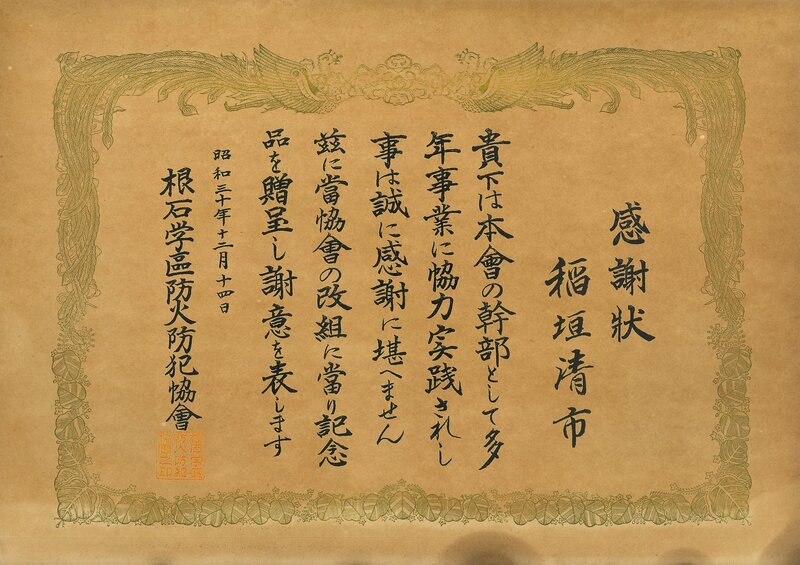 感謝狀
稲垣清市
貴下は本會の幹部として多
年事業に協力実践されし
事は誠に感謝に堪へません
玆に當協會の改組に當り記念
品を贈呈し謝意を表します
昭和三十年十二月十四日
根石学區防火防犯協會